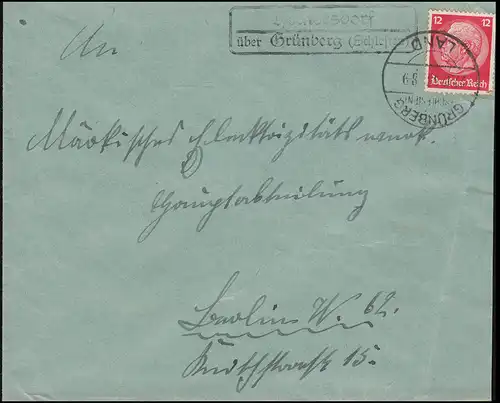 über Grünberg (Schles
12 12
Deutsches Reich
GRÜNBERG
LAND
An
Märkisches Elektrizitätswerk.
Hauptabteilung
Berlin W. 62.
15.